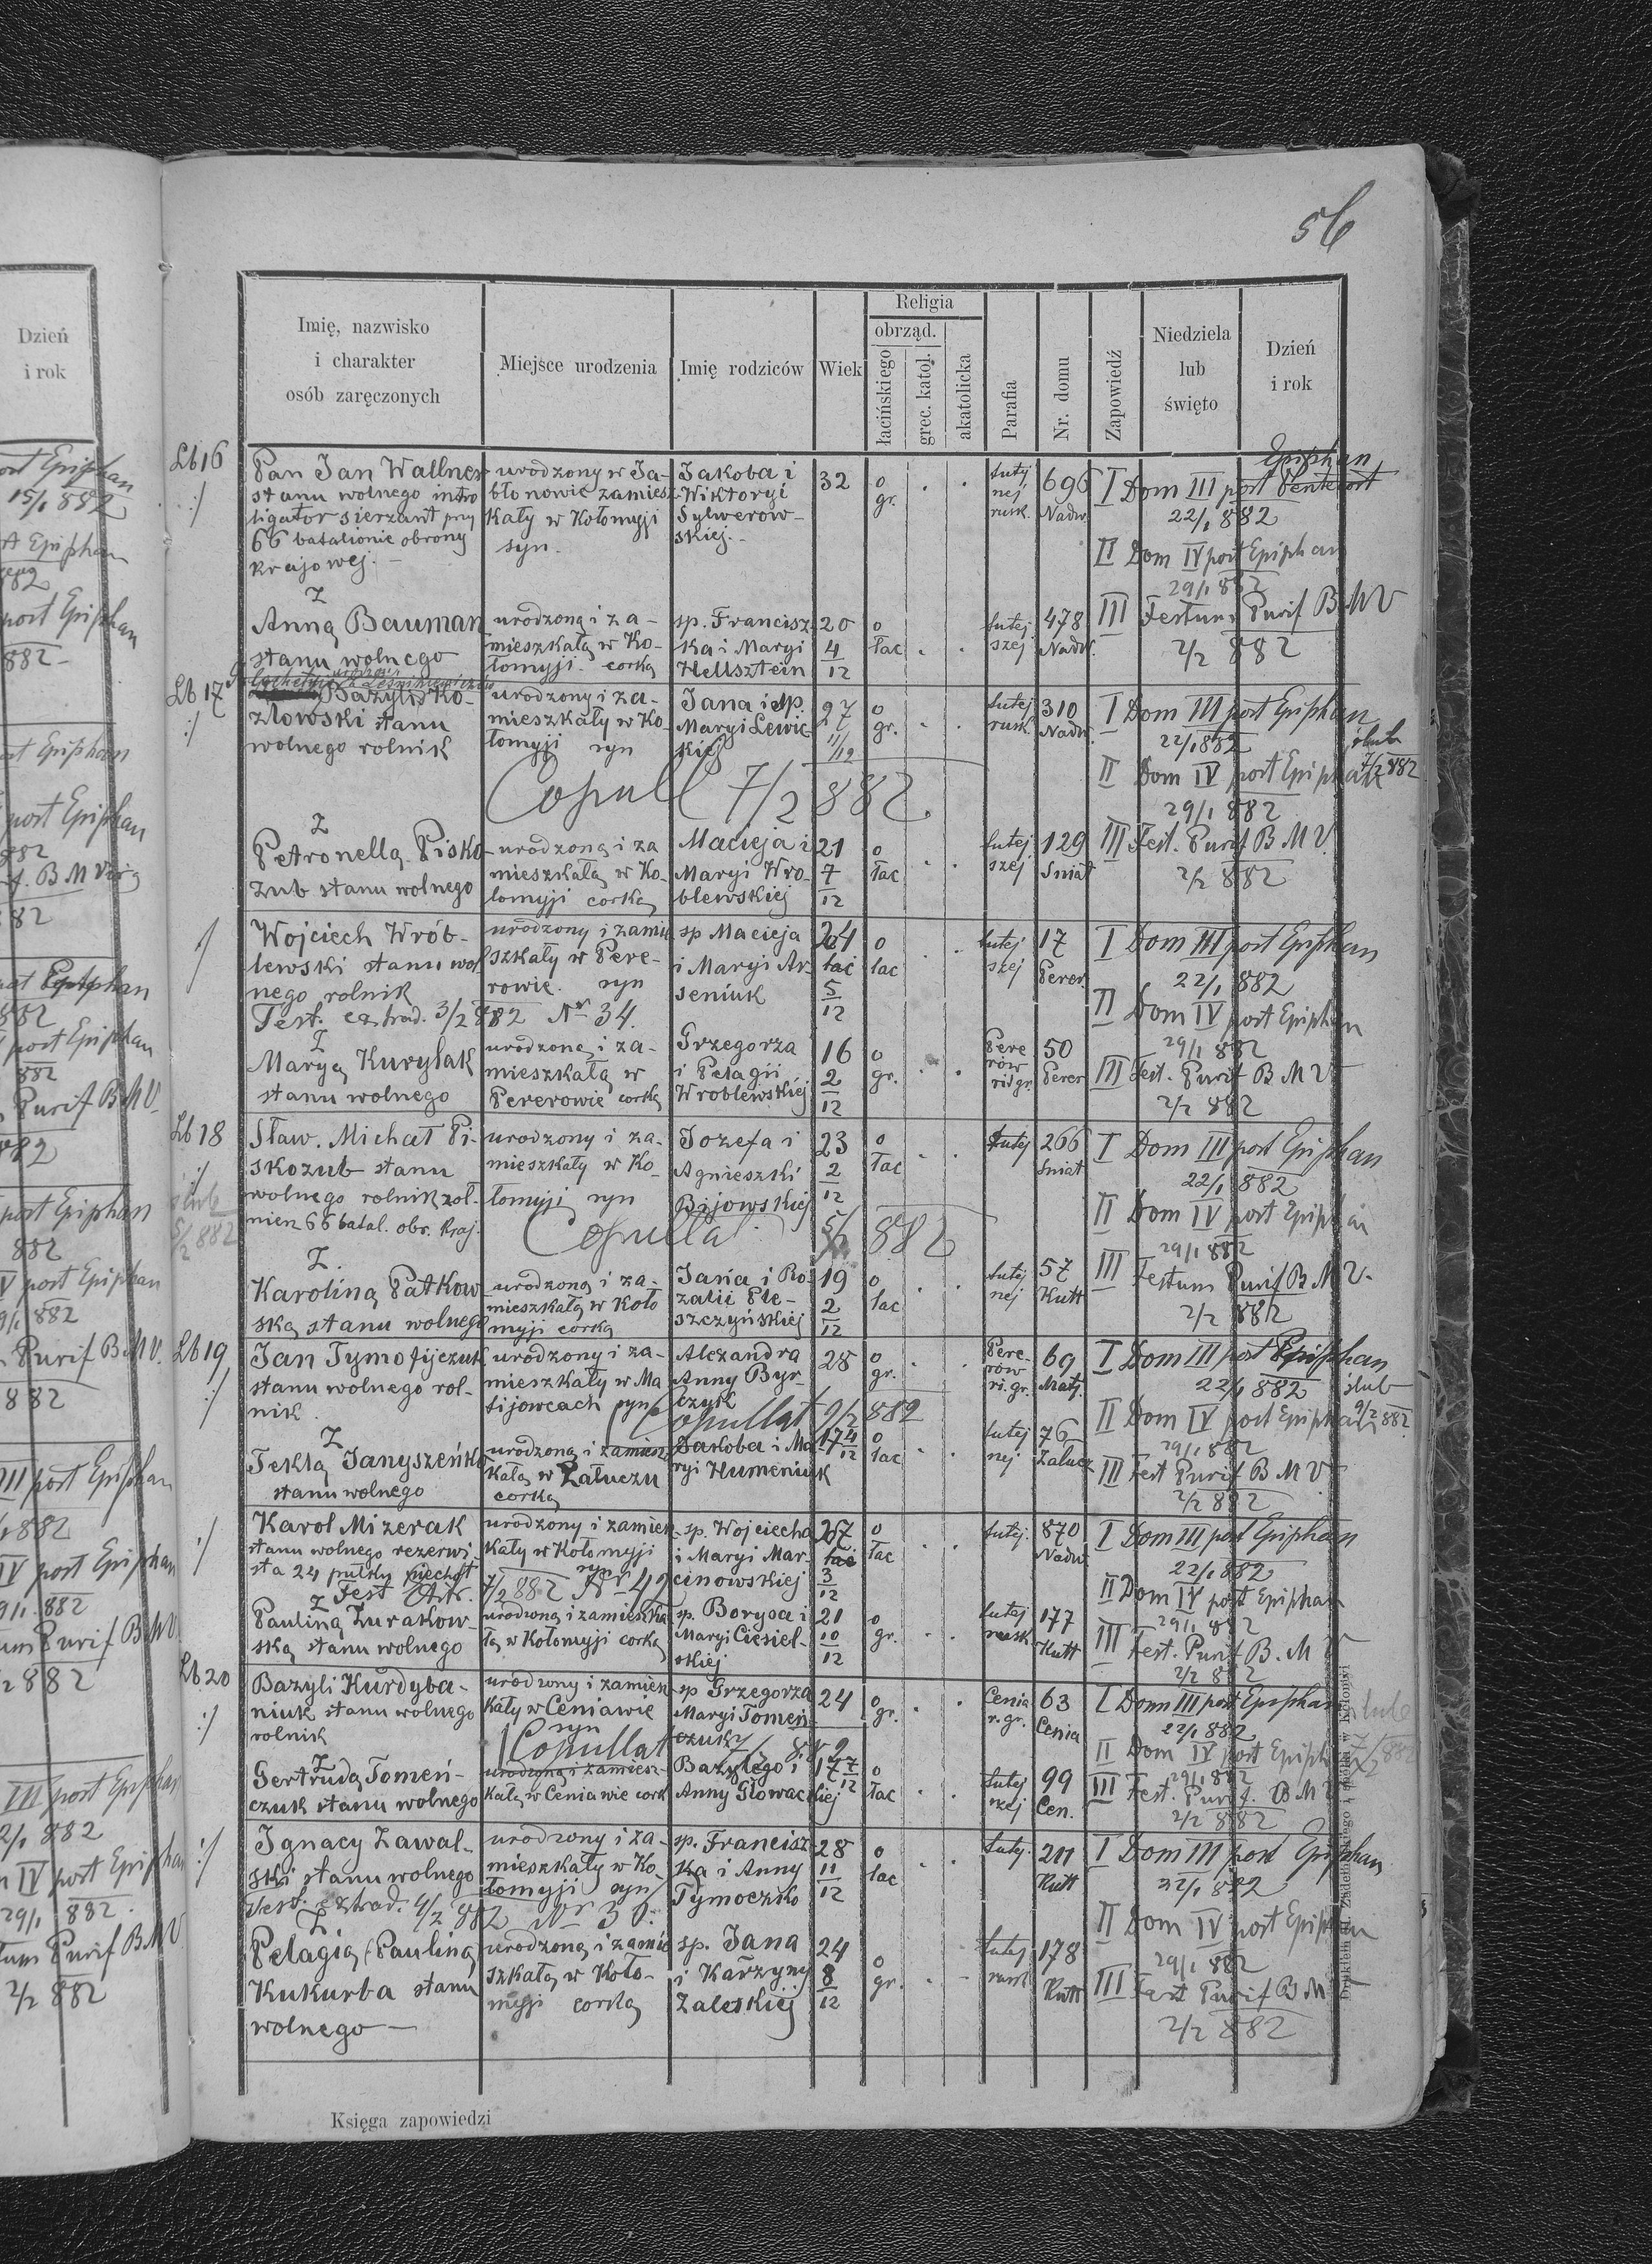 56
Imię, nazwisko
i charakter
osób zaręczonych
Miejsce urodzenia
Imię rodziców
Wiek
Religia
obrząd.
łacińskiego
grec. katol.
akatolicka
Parafia
Nr. domu
Zapowiedź
Niedziela
lub
święto
Dzień
i rok
Lb 16
Pan Jan Wallner
stanu wolnego intro
ligator sierzant przy
66 batalionie obrony
krajowej.
urodzony w Ja-
błonowie zamiesz
kały w Kołomyji
syn
Jakoba i
Wiktoryi
Sylwerow-
skiej.
32
o
gr.
tutej
nej
rusk.
696
Nadw.
I Dom III post Epiphan
22/1 882
II Dom IV post Epiphan
29/1 882
III Festum Purif B M V
2/2 882
Z
Anną Bauman
stanu wolnego
urodzoną i za-
mieszkałą w Ko-
łomyji corką
sp. Francisz
ka i Maryi
Hellsztein
20
4
12
o
łac
tutej
szej
478
Nadw.
Lb 17
Bazyli Ko-
złowski stanu
wolnego rolnik
urodzony i za-
mieszkały w Ko-
łomyji syn
Jana i sp.
Maryi Lewic
kiej
27
11/12
o
gr.
tutej
rusk.
310
Nadw.
I Dom III post Epiphan
22/1 882
II Dom IV post Epiphan
29/1 882
III Fest. Purif B M V.
2/2 882
ślub
7/2 882
Copull 7/2 882.
Z
Petronellą Pisko-
zub stanu wolnego
urodzoną i za
mieszkałą w Ko-
łomyji corką
Macieja i
Maryi Wro-
blewskiej
21
7
12
o
łac
tutej
szej
129
Sniat
Wojciech Wrób-
lewski stanu wol
nego rolnik
urodzony i zamie
szkały w Pere-
rowie. syn
sp Macieja
i Maryi Ar-
seniuk
24
5
12
o
łac
tutej
szej
17
Perer.
I Dom III post Epiphan
22/1 882
II Dom IV post Epiphan
29/1 882
III Fest. Purif B M V
2/2 882
Test. extrad. 3/2 882 Nr 34.
Z
Maryą Kurylak
stanu wolnego
urodzoną i za-
mieszkałą w
Pererowie corką
Grzegorza
i Pelagii
Wroblewskiej
16
2
12
o
gr.
Pere
row
50
Perer
Lb 18
Sław. Michał Pi-
skozub stanu
wolnego rolnik żoł-
nierz 66 batal. obr. kraj.
urodzony i za-
mieszkały w Ko-
łomyji syn
Jozefa i
Agnieszki
Bijowskiej
23
2
12
o
łac
tutej
266
Sniat
I Dom III post Epiphan
22/1 882
II Dom IV post Epiphan
29/1 882
III Festum Purif B M V.
2/2 882
ślub
5/2 882
Copulla 5/2 882
Z.
Karoliną Patkow
ską stanu wolnego
urodzoną i za-
mieszkałą w Koło
myji corką
Jana i Ro-
zalii Ple-
szczyńskiej
19
2
12
o
łac
tutej
nej
57
Kutt
Lb 19
Jan Tymofijczuk
stanu wolnego rol-
nik
urodzony i za-
mieszkały w Ma
tijowcach syn
Alexandra
Anny Byr-
czyk
28
o
gr.
Pere-
row
ri. gr.
69
Matj.
I Dom III post Epiphan
22/1 882
II Dom IV post Epiphan
29/1 882
III Fest Purif B M V.
2/2 882
ślub
9/2 882
Copullat 9/2 882
Z
Teklą Janyszeńko
stanu wolnego
urodzoną i zamiesz
kałą w Załuczu
corką
Jakoba i Ma
ryi Humeniuk
17 4/12
o
łac
tutej
nej
76
Załucz
Karol Mizerak
stanu wolnego rezerwi
sta 24 pułku piechot
urodzony i zamiesz
kały w Kołomyji
syn
sp. Wojciecha
i Maryi Mar-
cinowskiej
27
3
12
o
łac
tutej.
870
Nadw.
I Dom III post Epiphan
22/1 882
II Dom IV post Epiphan
29/1 882
III Fest. Purif B. M V
2/2 882
Test 7/2 882 Nr 42
Z
Pauliną Zurakow-
ską stanu wolnego
urodzoną i zamieszka
łą w Kołomyji corką
sp. Borysa i
Maryi Ciesiel-
skiej
21
10
12
o
gr.
tutej
rusk
177
Kutt
Lb 20
Bazyli Kurdyba-
niuk stanu wolnego
rolnik
urodzony i zamiesz
kały w Ceniawie
syn
sp Grzegorza
Maryi Tomeń-
czuk
24
o
gr.
Cenia
r. gr.
63
Cenia
I Dom III post Epiphan
22/1 882
II Dom IV post Epiph
29/1 882
III Fest. Purif. B M V
2/2 882
ślub
7/2 882
Copullat 7/2 882
Z
Gertrudą Tomeń-
czuk stanu wolnego
urodzoną i zamiesz-
kałą w Ceniawie cork
Bazylego i
Anny Słowackiej
17 7/12
o
łac
tutej
szej
99
Cen.
Ignacy Zawal-
ski stanu wolnego
urodzony i za-
mieszkały w Ko-
łomyji syn
sp. Francisz
ka i Anny
Tymoczko
28
11
12
o
łac
tutej.
211
Kutt
I Dom III post Epiphan
22/1 882
II Dom IV post Epiphan
29/1 882
III Fest Purif B M
2/2 882
Test. extrad. 4/2 882 Nr 38.
Z
Pelagią (Pauliną
Kukurba stanu
wolnego
urodzoną i zamie
szkałą w Koło-
myji corką
sp. Jana
i Karzyny
Zaleskiej
24
8
12
o
gr.
tutej
rusk
178
Kutt
Księga zapowiedzi